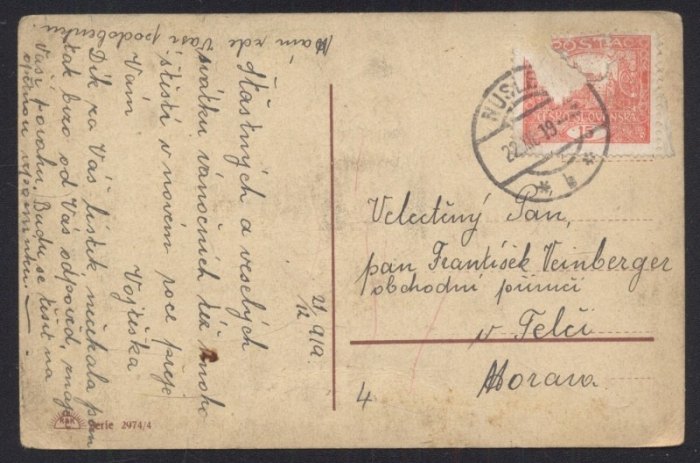 Mám zde Vaši podobenku
Šťastných a veselých
svátků vánočních též mnoho
štěstí v novém roce přeje
Vám
Vojtěška
Dík za Váš lístek nečekala jsem
tak brzo od Vás odpověď, znaje
Vaši povahu. Budu se těšit na
21/12 919
POŠTA
ČESKO-SLOVENSKÁ
15
NUSLE
22. 19
* b *
Velectěný Pan,
pan František Veinberger
obchodní příručí
v Telči
Morava
4
Serie 2974/4